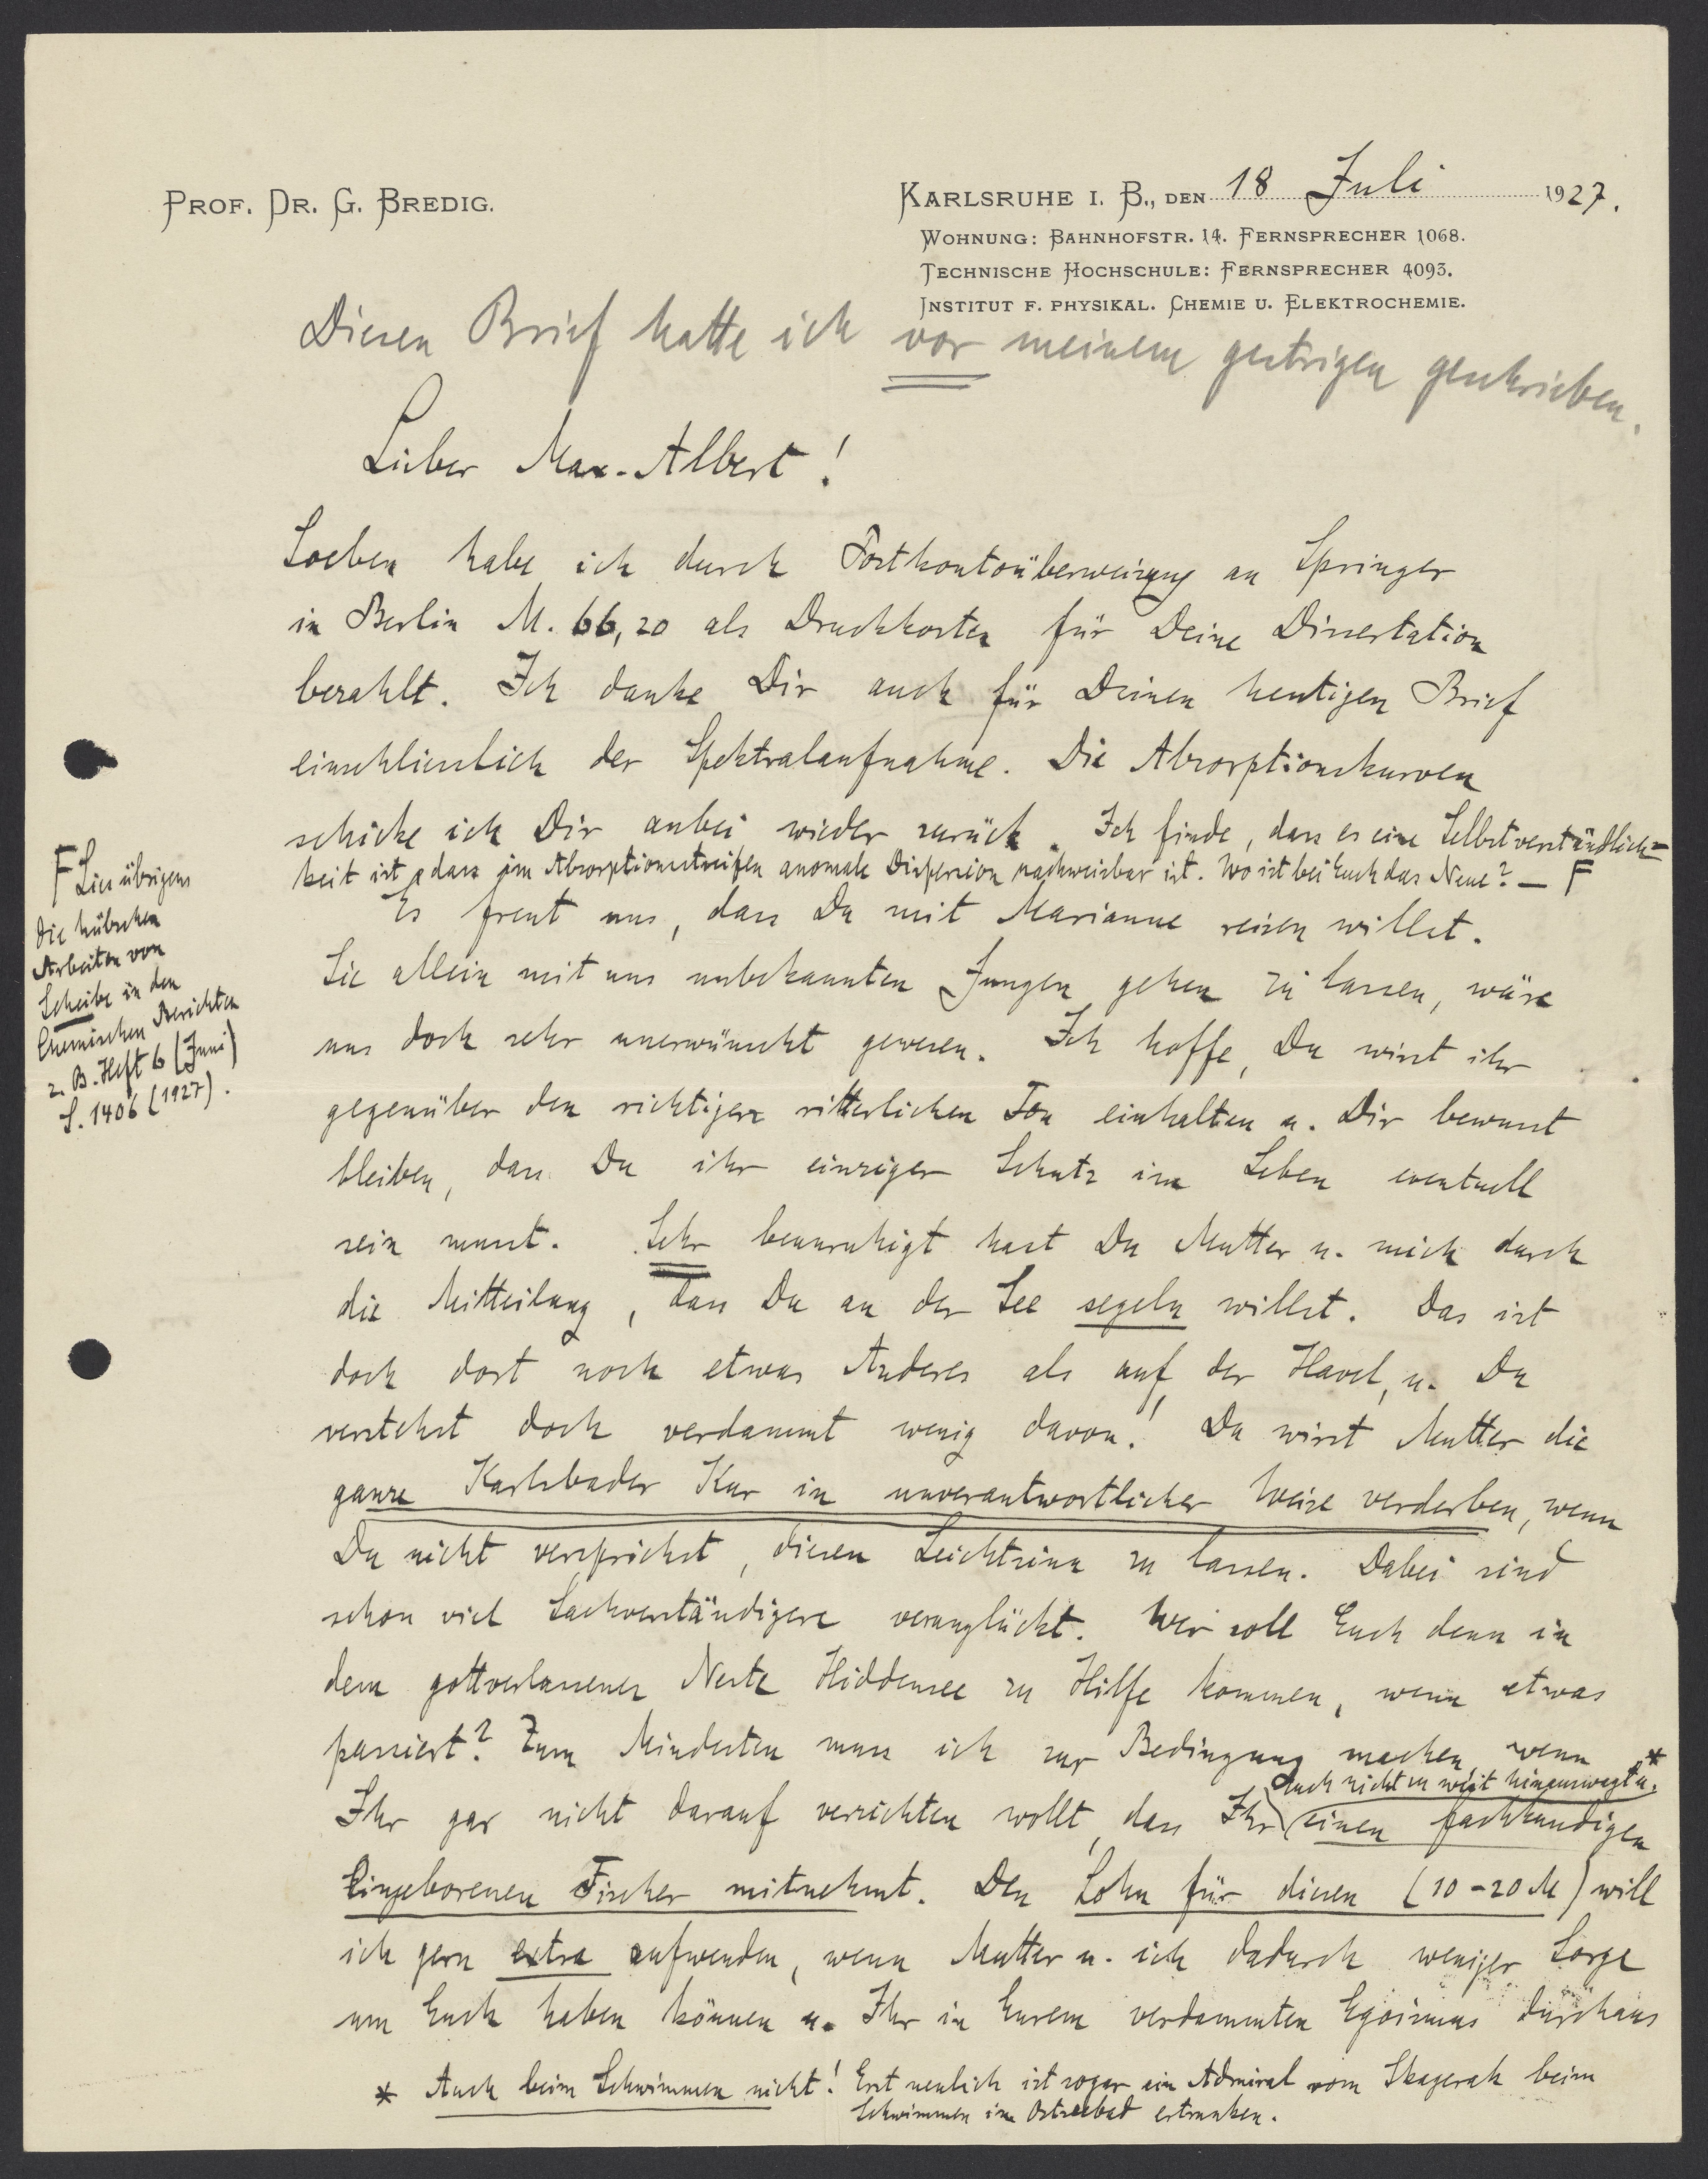 PROF. DR. G. BREDIG.
KARLSRUHE I. B., DEN 18 Juli 1927.
WOHNUNG: BAHNHOFSTR. 14. FERNSPRECHER 1068.
TECHNISCHE HOCHSCHULE: FERNSPRECHER 4093.
INSTITUT F. PHYSIKAL. CHEMIE U. ELEKTROCHEMIE.
Diesen Brief hatte ich vor meinem gestrigen geschrieben.
Lieber Max-Albert!
Soeben habe ich durch Postkontoüberweisung an Springer
in Berlin M. 66,20 als Druckkosten für Deine Dissertation
bezahlt. Ich danke Dir auch für Deinen heutigen Brief
einschliesslich der Spektralaufnahme. Die Absorptionskurven
schicke ich Dir anbei wieder zurück. Ich finde, dass es eine Selbstverständlich=
keit ist, dass im Absorptionsstreifen anomale Dispersion nachweisbar ist. Wo ist bei Euch das Neue? — F
Es freut uns, dass Du mit Marianne reisen willst.
Sie allein mit uns unbekannten Jungen gehen zu lassen, wäre
uns doch sehr unerwünscht gewesen. Ich hoffe, Du wirst ihr
gegenüber den richtigen ritterlichen Ton einhalten u. Dir bewusst
bleiben, dass Du ihr einziger Schutz im Leben eventuell
sein musst. Sehr beunruhigt hast Du Mutter u. mich durch
die Mitteilung, dass Du an der See segeln willst. Das ist
doch dort noch etwas Anderes als auf der Havel, u. Du
verstehst doch verdammt wenig davon! Du wirst Mutter die
ganze Karlsbader Kur in unverantwortlicher Weise verderben, wenn
Du nicht versprichst, diesen Leichtsinn zu lassen. Dabei sind
schon viel Sachverständigere verunglückt. Wer soll Euch denn in
dem gottverlassenen Neste Hiddensee zu Hilfe kommen, wenn etwas
passiert? Zum Mindesten muss ich zur Bedingung machen, wenn
Euch nicht zu weit hinauswagt u. *
Ihr gar nicht darauf verzichten wollt, dass Ihr einen fachkundigen
Eingeborenen Fischer mitnehmt. Den Lohn für diesen (10-20 M) will
ich gern extra aufwenden, wenn Mutter u. ich dadurch weniger Sorge
um Euch haben können u. Ihr in Eurem verdammten Egoismus durchaus
* Auch beim Schwimmen nicht! Erst neulich ist sogar ein Admiral vom Skagerak beim
Schwimmen im Ostseebad ertrunken.
F Lies übrigens
die hübschen
Arbeiten von
Scheibe in den
Chemischen Berichten
z. B. Heft 6 (Juni)
S. 1406 (1927).